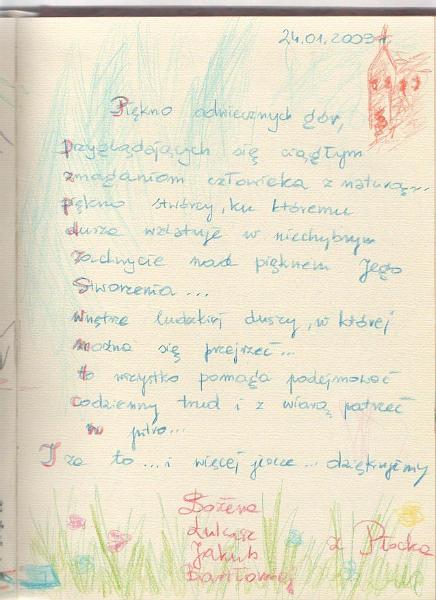 24.01.2009 r.
Piękno odwiecznych gór,
przyglądających się ciągłym
zmaganiom człowieka z naturą...
piękno stwórcy, ku któremu
dusza wzlatuje w niechybnym
zachwycie nad pięknem Jego
Stworzenia...
wnętrze ludzkiej duszy, w której
można się przejrzeć...
to wszystko pomaga podejmować
codzienny trud i z wiarą patrzeć
w jutro...
I za to... i więcej jeszcze... dziękujemy
Bożena
Łukasz
Jakub z Płocka
Bartłomiej